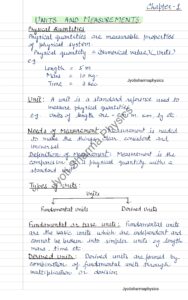 Chapter-1
UNITS AND MEASUREMENTS
Physical Quantities
Physical quantities are measurable properties
of physical system
Physical quantity = Numerical value × Units
e.g
Length = 5 m
Mass = 10 kg
Time = 2 sec
Jyotisharmaphysics
Unit: A unit is a standard reference used to
measure physical quantities
e.g. Units of length are - m, km etc
Needs of Measurement: Measurement is needed
to make the things clear, consistent and
universal
Definition of Measurement: Measurement is the
comparison of physical quantity with a
standard unit
Jyotisharmaphysics
Types of Units:
Units
Fundamental units
Derived units
Fundamental or base units: Fundamental units
are the basic units which are independent and
cannot be broken into simpler units eg length
mass, time etc
Derived units: Derived units are formed by
combination of fundamental units through
multiplication or division
Jyotisharmaphysics